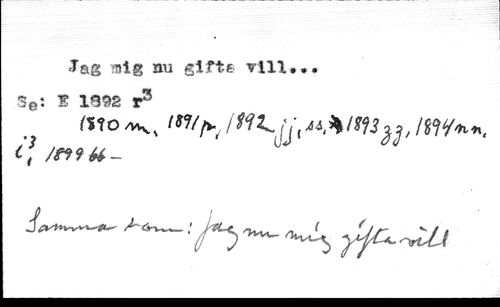 Jag mig nu gifta vill...
Se: E 1892 r³
1890 m, 1891 p, 1892 jj, ss, 1893 zz, 1894 nn,
i³, 1899 66-
Samma som: Jag nu mig gifta vill